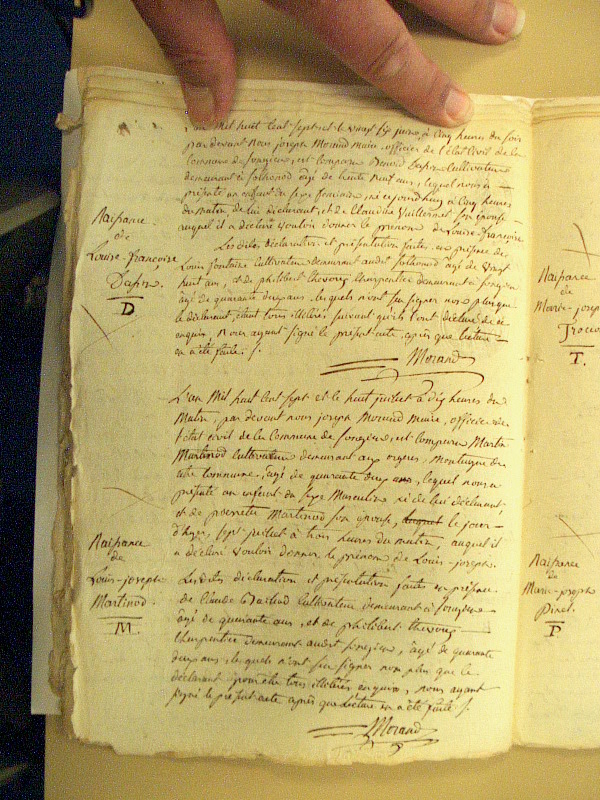 L'an Mil huit Cent Sept et le vingt juin, à Cinq heures du Soir
par devant nous joseph Morand Maire officier de l'état Civil de la
Commune de Songieu, est comparu Benoit Cultivateur
demeurant à Sothonod âgé de trente neuf ans, lequel nous a
présenté un enfant du Sexe feminin, né aujourdhuy à Cinq heures
du matin, de lui déclarant, et de Claudine Son épouse
auquel il a déclaré vouloir donner le prénom de Louise-françoise
Les dites déclaration et présentation faites en présence de
Louis fontaine Cultivateur demeurant audit Sothonod âgé de vingt
huit ans, et de philibert Charpentier demeurant à Songieu
âgé de quarante deux ans, lesquels n'ont su signer non plus que
le déclarant, étant tous illitérés suivant qu'ils l'ont déclaré de ce
enquis, Nous ayant signé le présent acte, après que lecture
en a été faite.
Morand
Naissance
de
Louise-françoise
D
L'an Mil huit Cent Sept et le huit juillet à dix heures du
Matin, par devant nous joseph Morand Maire, officier de
l'état civil de la Commune de Songieu, est comparu
Martinod Cultivateur demeurant aux montagne de
cette Commune, âgé de quarante deux ans, lequel nous a
présenté un enfant du Sexe Masculin né de lui déclarant
et de Martinod Son épouse, le jour
d'hyer, Sept juillet à trois heures du matin, auquel il
a déclaré vouloir donner le prénom de Louis-joseph.
Les dites déclaration et présentation faites en présence
de Claude Cultivateur demeurant à Songieu
âgé de quarante ans, et de philibert
Charpentier demeurant audit Songieu, âgé de quarante
deux ans, lesquels n'ont su signer non plus que le
déclarant pour être tous illitérés enquis, nous ayant
signé le présent acte après que lecture en a été faite.
Morand
Naissance
de
Louis-joseph
Martinod.
M.
Naissance
de
Marie-jos
T.
Naissance
de
Marie-joseph
Pinet
P